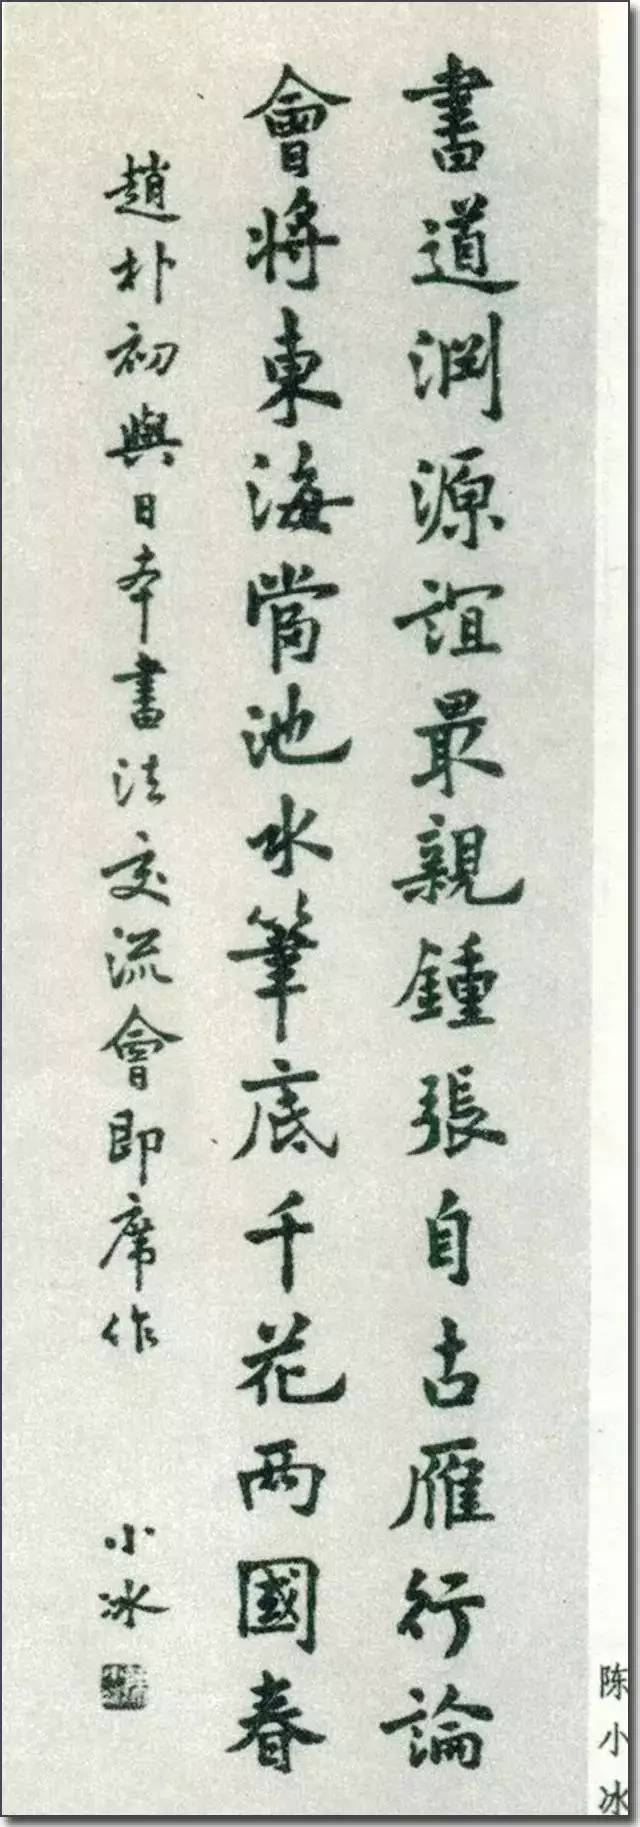 書道渊源誼最親鍾張自古雁行論
會將東海當池水筆底千花两國春
趙朴初與日本書法交流會即席作
小冰
陈小冰